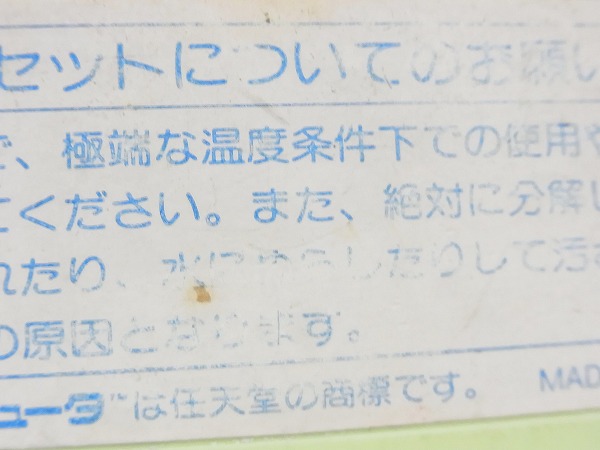 セットについてのお願い
で、極端な温度条件下での使用や
てください。また、絶対に分解し
れたり、水にぬらしたりして汚す
の原因となります。
ュータ™は任天堂の商標です。 MAD